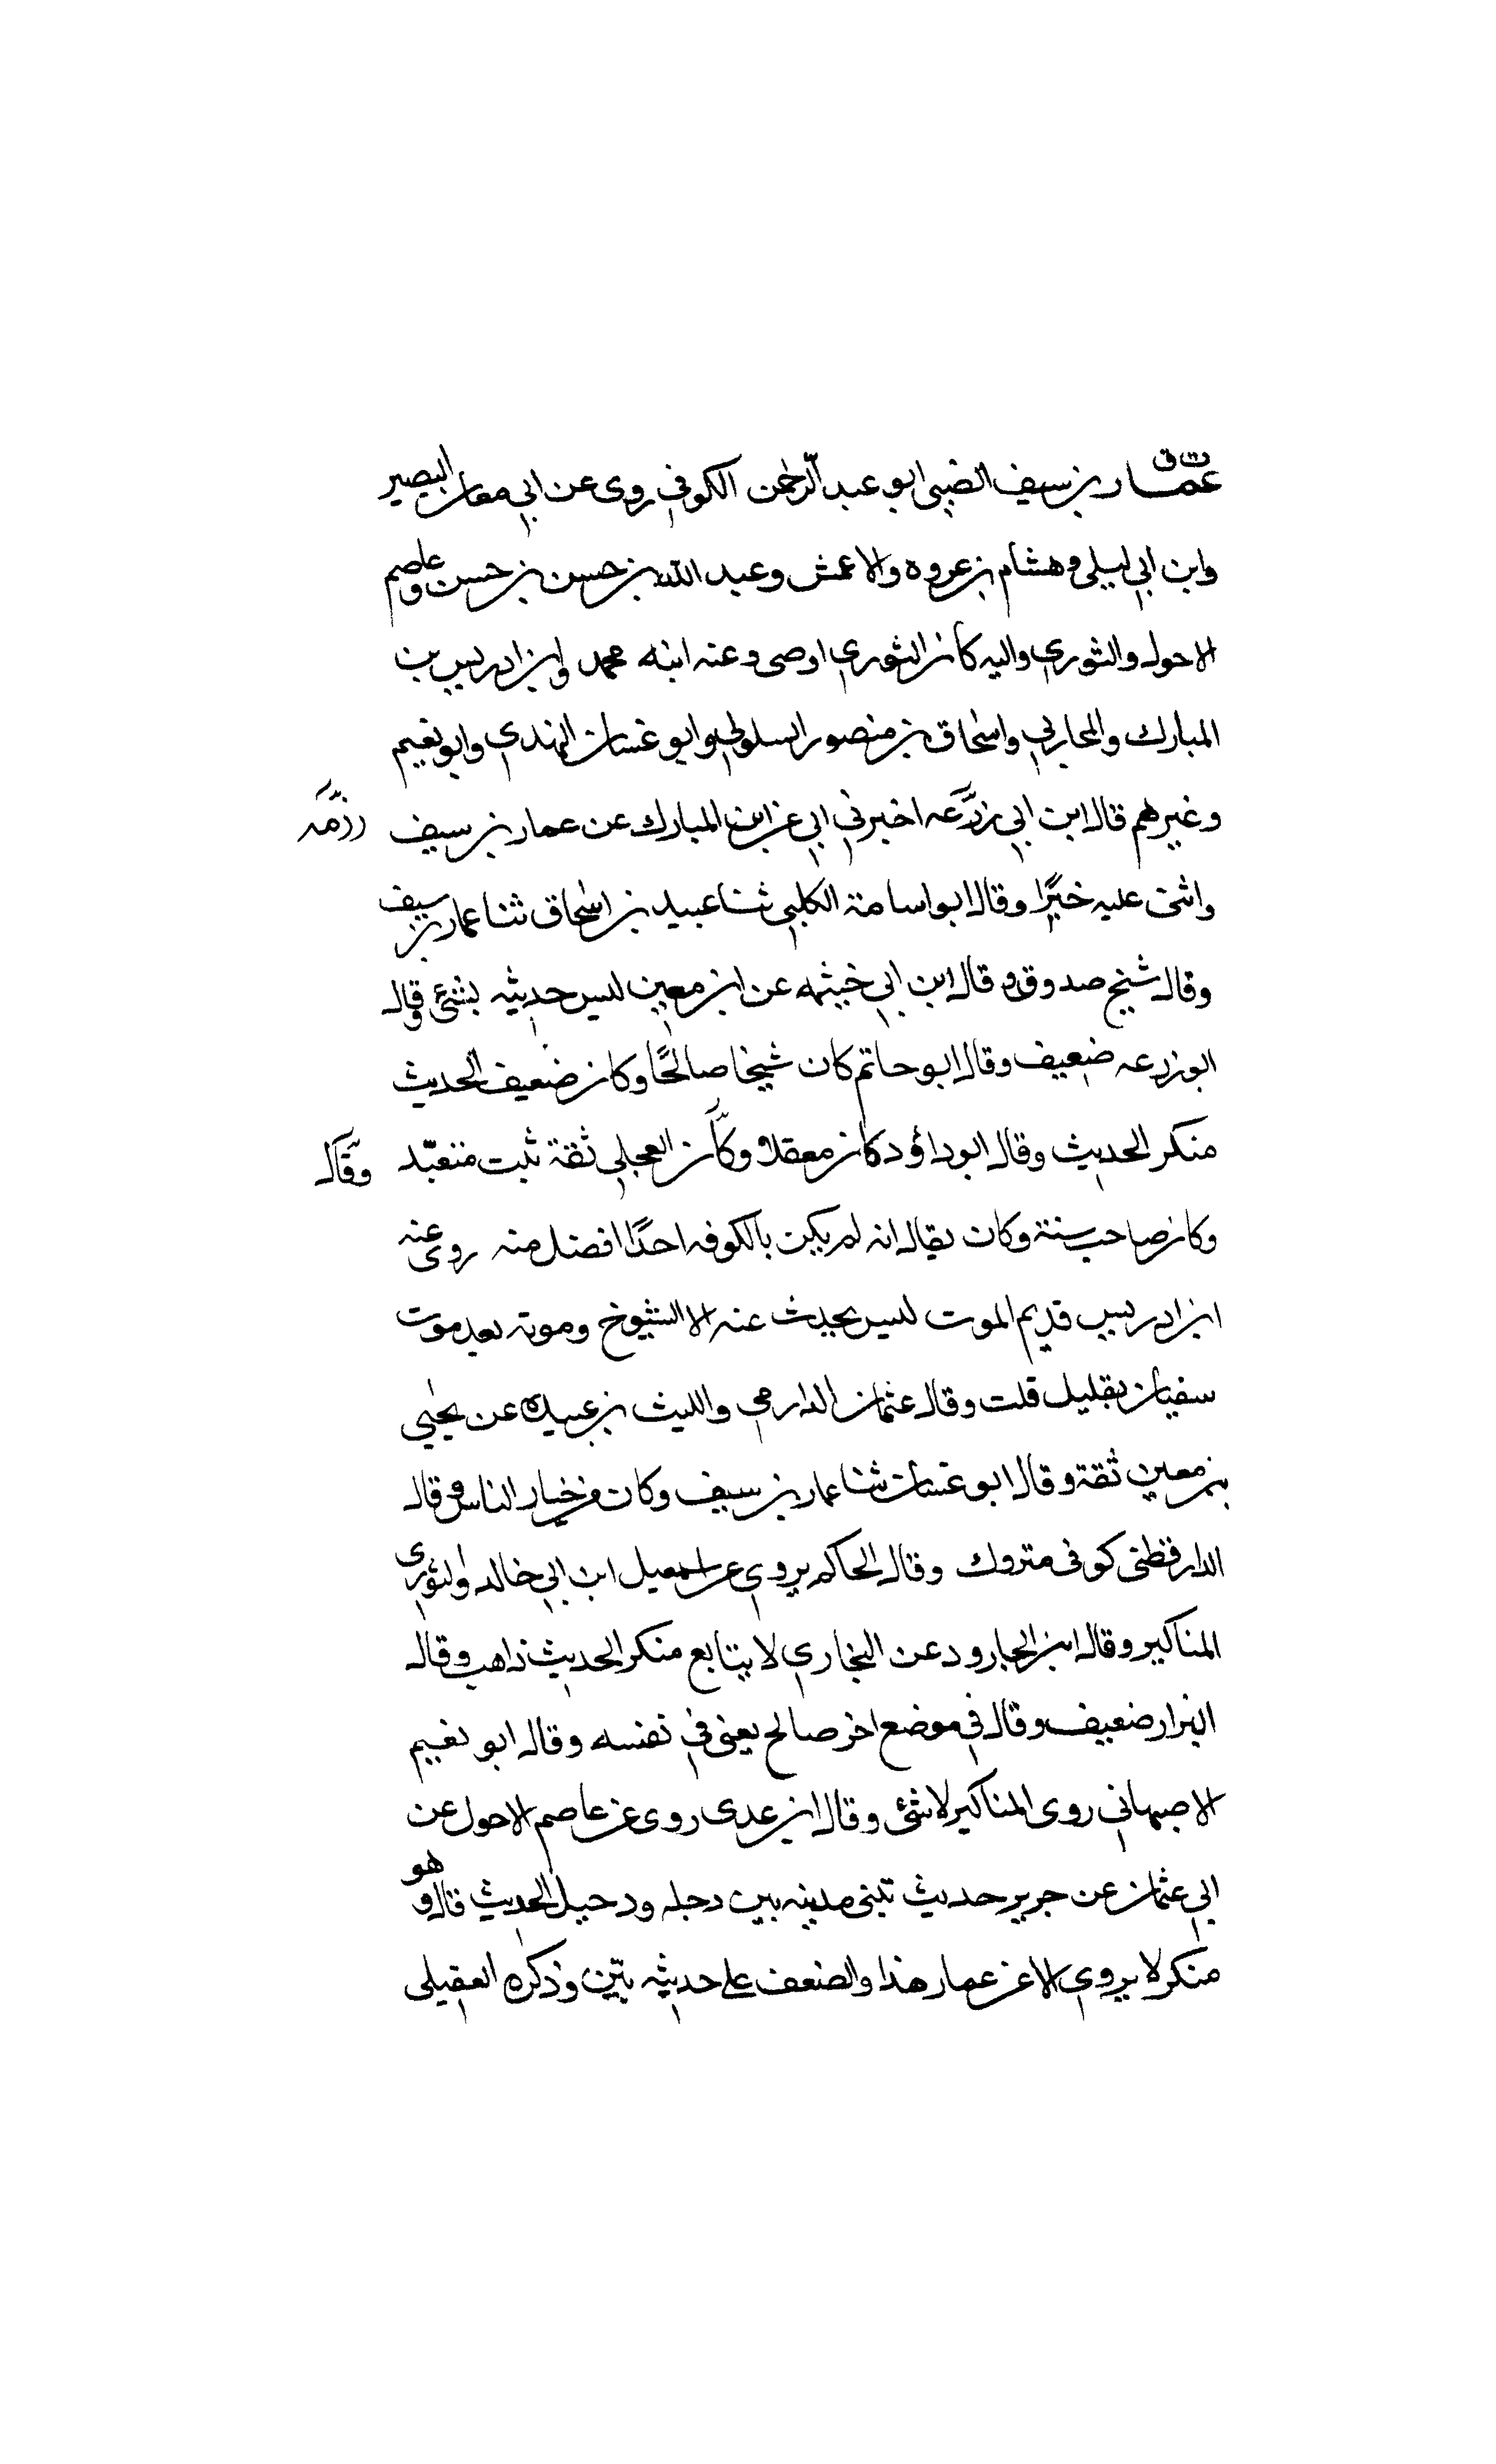 ت ق
عمار بن سيف الضبي ابو عبد الرحمن الكوفي روى عن ابي معان البصير
وابن ابي ليلى وهشام بن عروه والاعمش وعبد الله بن حسن بن حسن وعاصم
الاحول والثوري واليه كان الثوري اوصى وعنه ابنه محمد وابن ادريس بن
المبارك والمحاربي واسحاق بن منصور السلولي وابو غسان النهدي وابو نعيم
وغيرهم قال ابن ابي زرعه اخبرني ابي عن ابن المبارك عن عمار بن سيف رزمه
واثنى عليه خيرًا وقال ابو اسامة الكلبي ثنا عبيد بن اسحاق ثنا عمار بن سيف
وقال شيخ صدوق وقال ابن ابي خيثمه عن ابن معين ليس حديثه بشئ وقال
ابو زرعه ضعيف وقال ابو حاتم كان شيخا صالحًا وكان ضعيف الحديث
منكر الحديث وقال ابو داؤد كان مغفلا وكان العجلي ثقة ثبت متعبّد وقال
وكان صاحب سنة وكان يقال انه لم يكن بالكوفه احدًا افضل منه روى عنه
ابن ادريس قديم الموت ليس يحدث عنه الا الشيوخ وموته بعد موت
سفيان بقليل قلت وقال عثمان الدارمي والليث بن عبيده عن يحيي
بن معين ثقة وقال ابو غسان ثنا عمار بن سيف وكان من خيار الناس وقال
الدارقطنى كوفى متروك وقال الحاكم يروي عن اسمعيل ابن ابي خالد والثورى
المناكير وقال ابن الجارود عن البخاري لا يتابع منكر الحديث ذاهب وقال
البزار ضعيف وقال في موضع اخر صالح يعنى في نفسه وقال ابو نعيم
الاصبهاني روى المناكير لا شئ وقال ابن عدى روى عن عاصم الاحول عن
ابي عثمان عن جرير حديث تبنى مدينه بين دجله ودجيل الحديث قال وهو
منكر لا يروي الا عن عمار هذا والضعف على حديثه بيّن وذكره العقيلى